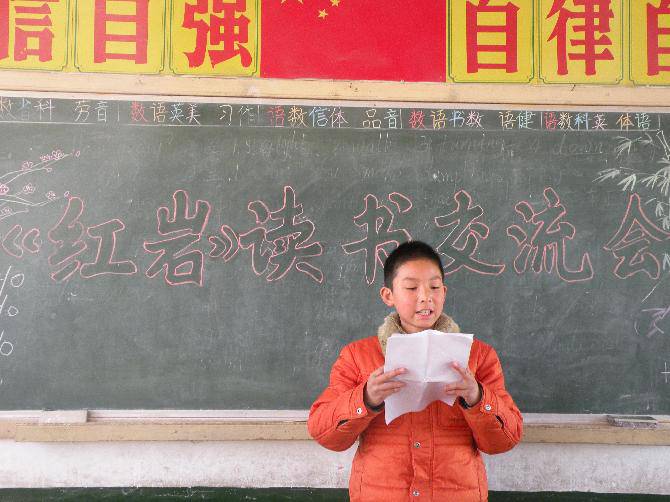 信 自 强 自 律 自
科 劳音 数语英美 习作 语数信体 品音 数语书数 语健 语数科英 体语
《红岩》读书交流会